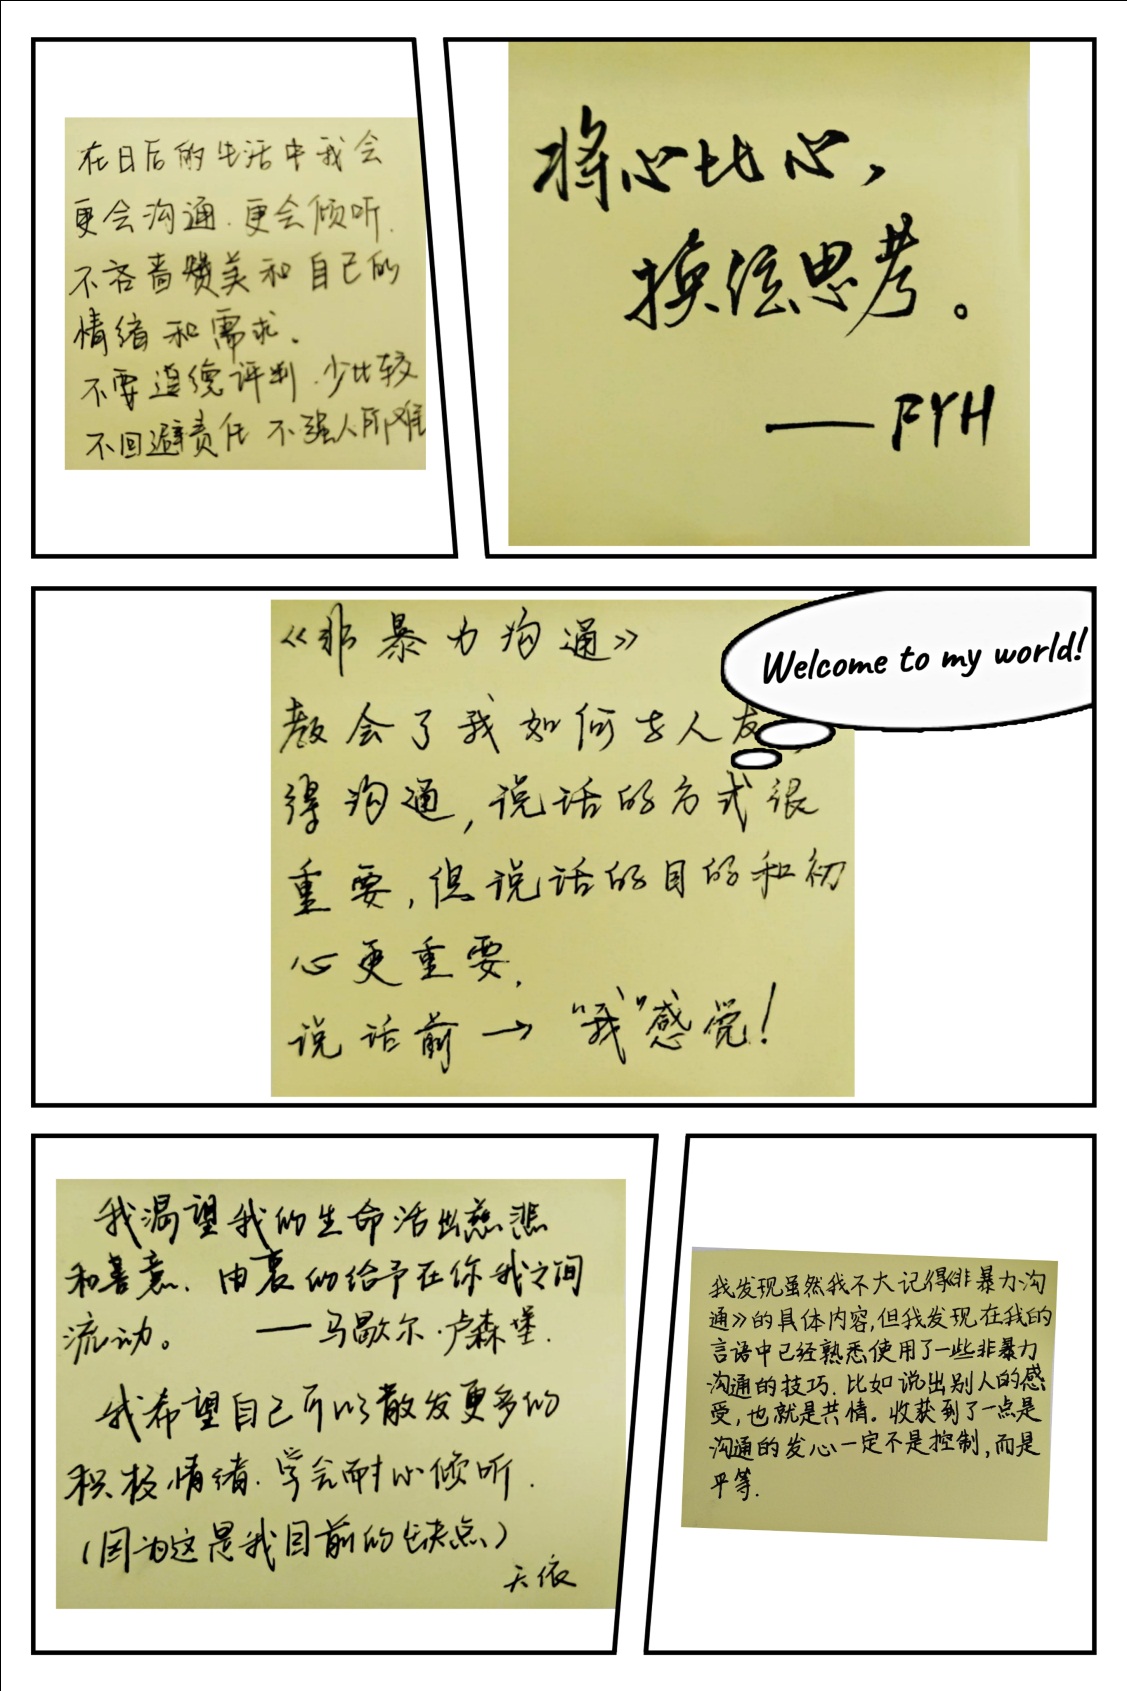 在日后的生活中我会
更会沟通.更会倾听.
不吝啬赞美和自己的
情绪和需求.
不要道德评判.少比较
不回避责任 不强人所难
将心比心,
换位思考。
——FYH
Welcome to my world!
《非暴力沟通》
教会了我如何去人友
得沟通,说话的方式很
重要,但说话的目的和初
心更重要.
说话前→"我"感觉!
我渴望我的生命活出慈悲
和善意.由衷的给予在你我之间
流动。 ——马歇尔·卢森堡.
我希望自己可以散发更多的
积极情绪.学会耐心倾听.
(因为这是我目前的缺点)
天依
我发现虽然我不大记得《非暴力沟
通》的具体内容,但我发现在我的
言语中已经熟悉使用了一些非暴力
沟通的技巧.比如说出别人的感
受,也就是共情。收获到了一点是
沟通的发心一定不是控制,而是
平等.